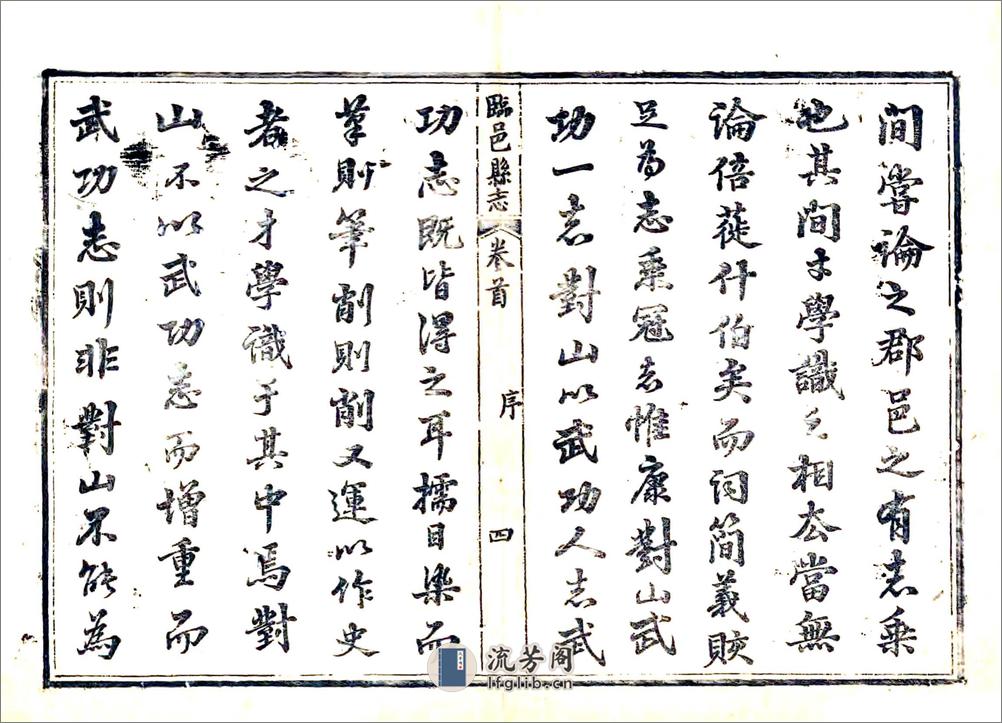 間嘗論之郡邑之有志乘
也其間才學識之相厺當無
論倍蓰什伯矣而詞簡義賅
足為志乘冠者惟康對山武
功一志對山以武功人志武
臨邑縣志 卷首 序 四
功志既皆得之耳擩目染而
筆則筆削則削又運以作史
者之才學識于其中焉對
山不以武功志而增重而
武功志則非對山不能為
流芳阁
lfglib.cn